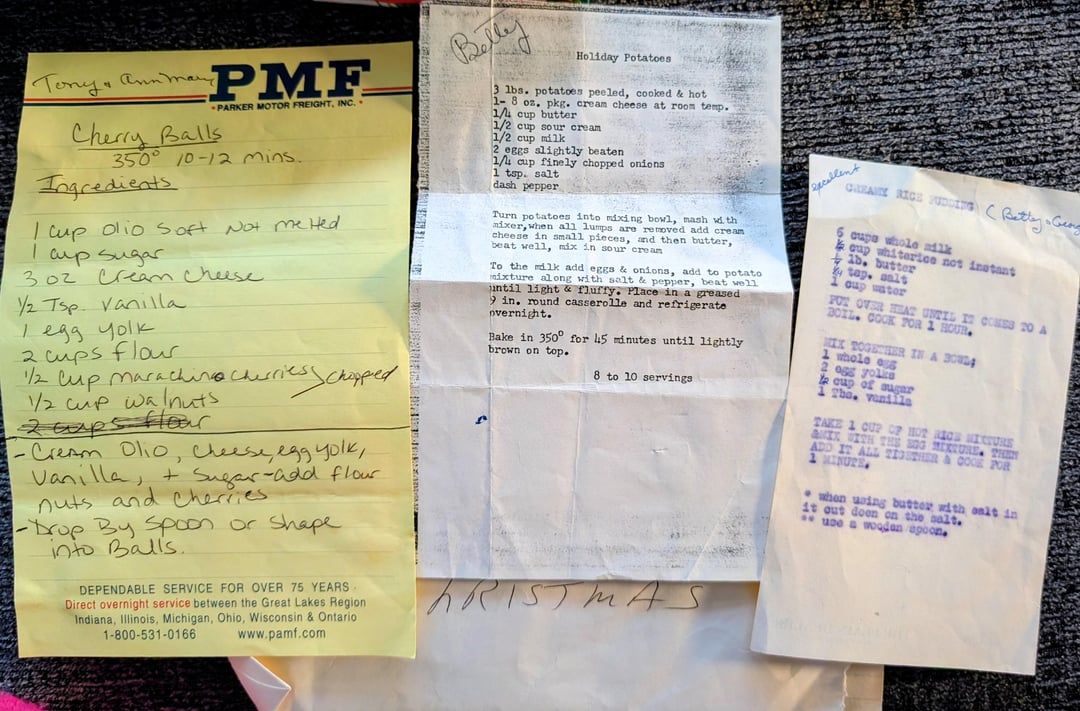 Tony & AnnMary
PMF
PARKER MOTOR FREIGHT, INC.
Cherry Balls
350° 10-12 mins.
Ingredients
1 cup Olio Soft Not melted
1 cup sugar
3 oz Cream cheese
1/2 Tsp. vanilla
1 egg yolk
2 cups flour
1/2 cup marachino cherries > chopped
1/2 cup walnuts
2 cups flour
- Cream Olio, cheese, egg yolk,
vanilla, + Sugar-add flour
nuts and cherries
- Drop By Spoon or shape
into Balls.
DEPENDABLE SERVICE FOR OVER 75 YEARS
Direct overnight service between the Great Lakes Region
Indiana, Illinois, Michigan, Ohio, Wisconsin & Ontario
1-800-531-0166 www.pamf.com
Betty
Holiday Potatoes
3 lbs. potatoes peeled, cooked & hot
1- 8 oz. pkg. cream cheese at room temp.
1/4 cup butter
1/2 cup sour cream
1/2 cup milk
2 eggs slightly beaten
1/4 cup finely chopped onions
1 tsp. salt
dash pepper
Turn potatoes into mixing bowl, mash with
mixer,when all lumps are removed add cream
cheese in small pieces, and then butter,
beat well, mix in sour cream
To the milk add eggs & onions, add to potato
mixture along with salt & pepper, beat well
until light & fluffy. Place in a greased
9 in. round casserolle and refrigerate
overnight.
Bake in 350° for 45 minutes until lightly
brown on top.
8 to 10 servings
HRISTMAS
excellent
CREAMY RICE PUDDING (Betty & Georg
6 cups whole milk
cup whiterice not instant
lb. butter
tsp. salt
1 cup water
PUT OVER HEAT UNTIL IT COMES TO A
BOIL. COOK FOR 1 HOUR.
MIX TOGETHER IN A BOWL;
1 whole egg
2 egg yolks
1/2 cup of sugar
1 Tbs. vanilla
TAKE 1 CUP OF HOT RICE MIXTURE
&MIX WITH THE EGG MIXTURE. THEN
ADD IT ALL TIGETHER & COOK FOR
1 MINUTE.
* when using butter with salt in
it cut doen on the salt.
** use a wooden spoon.